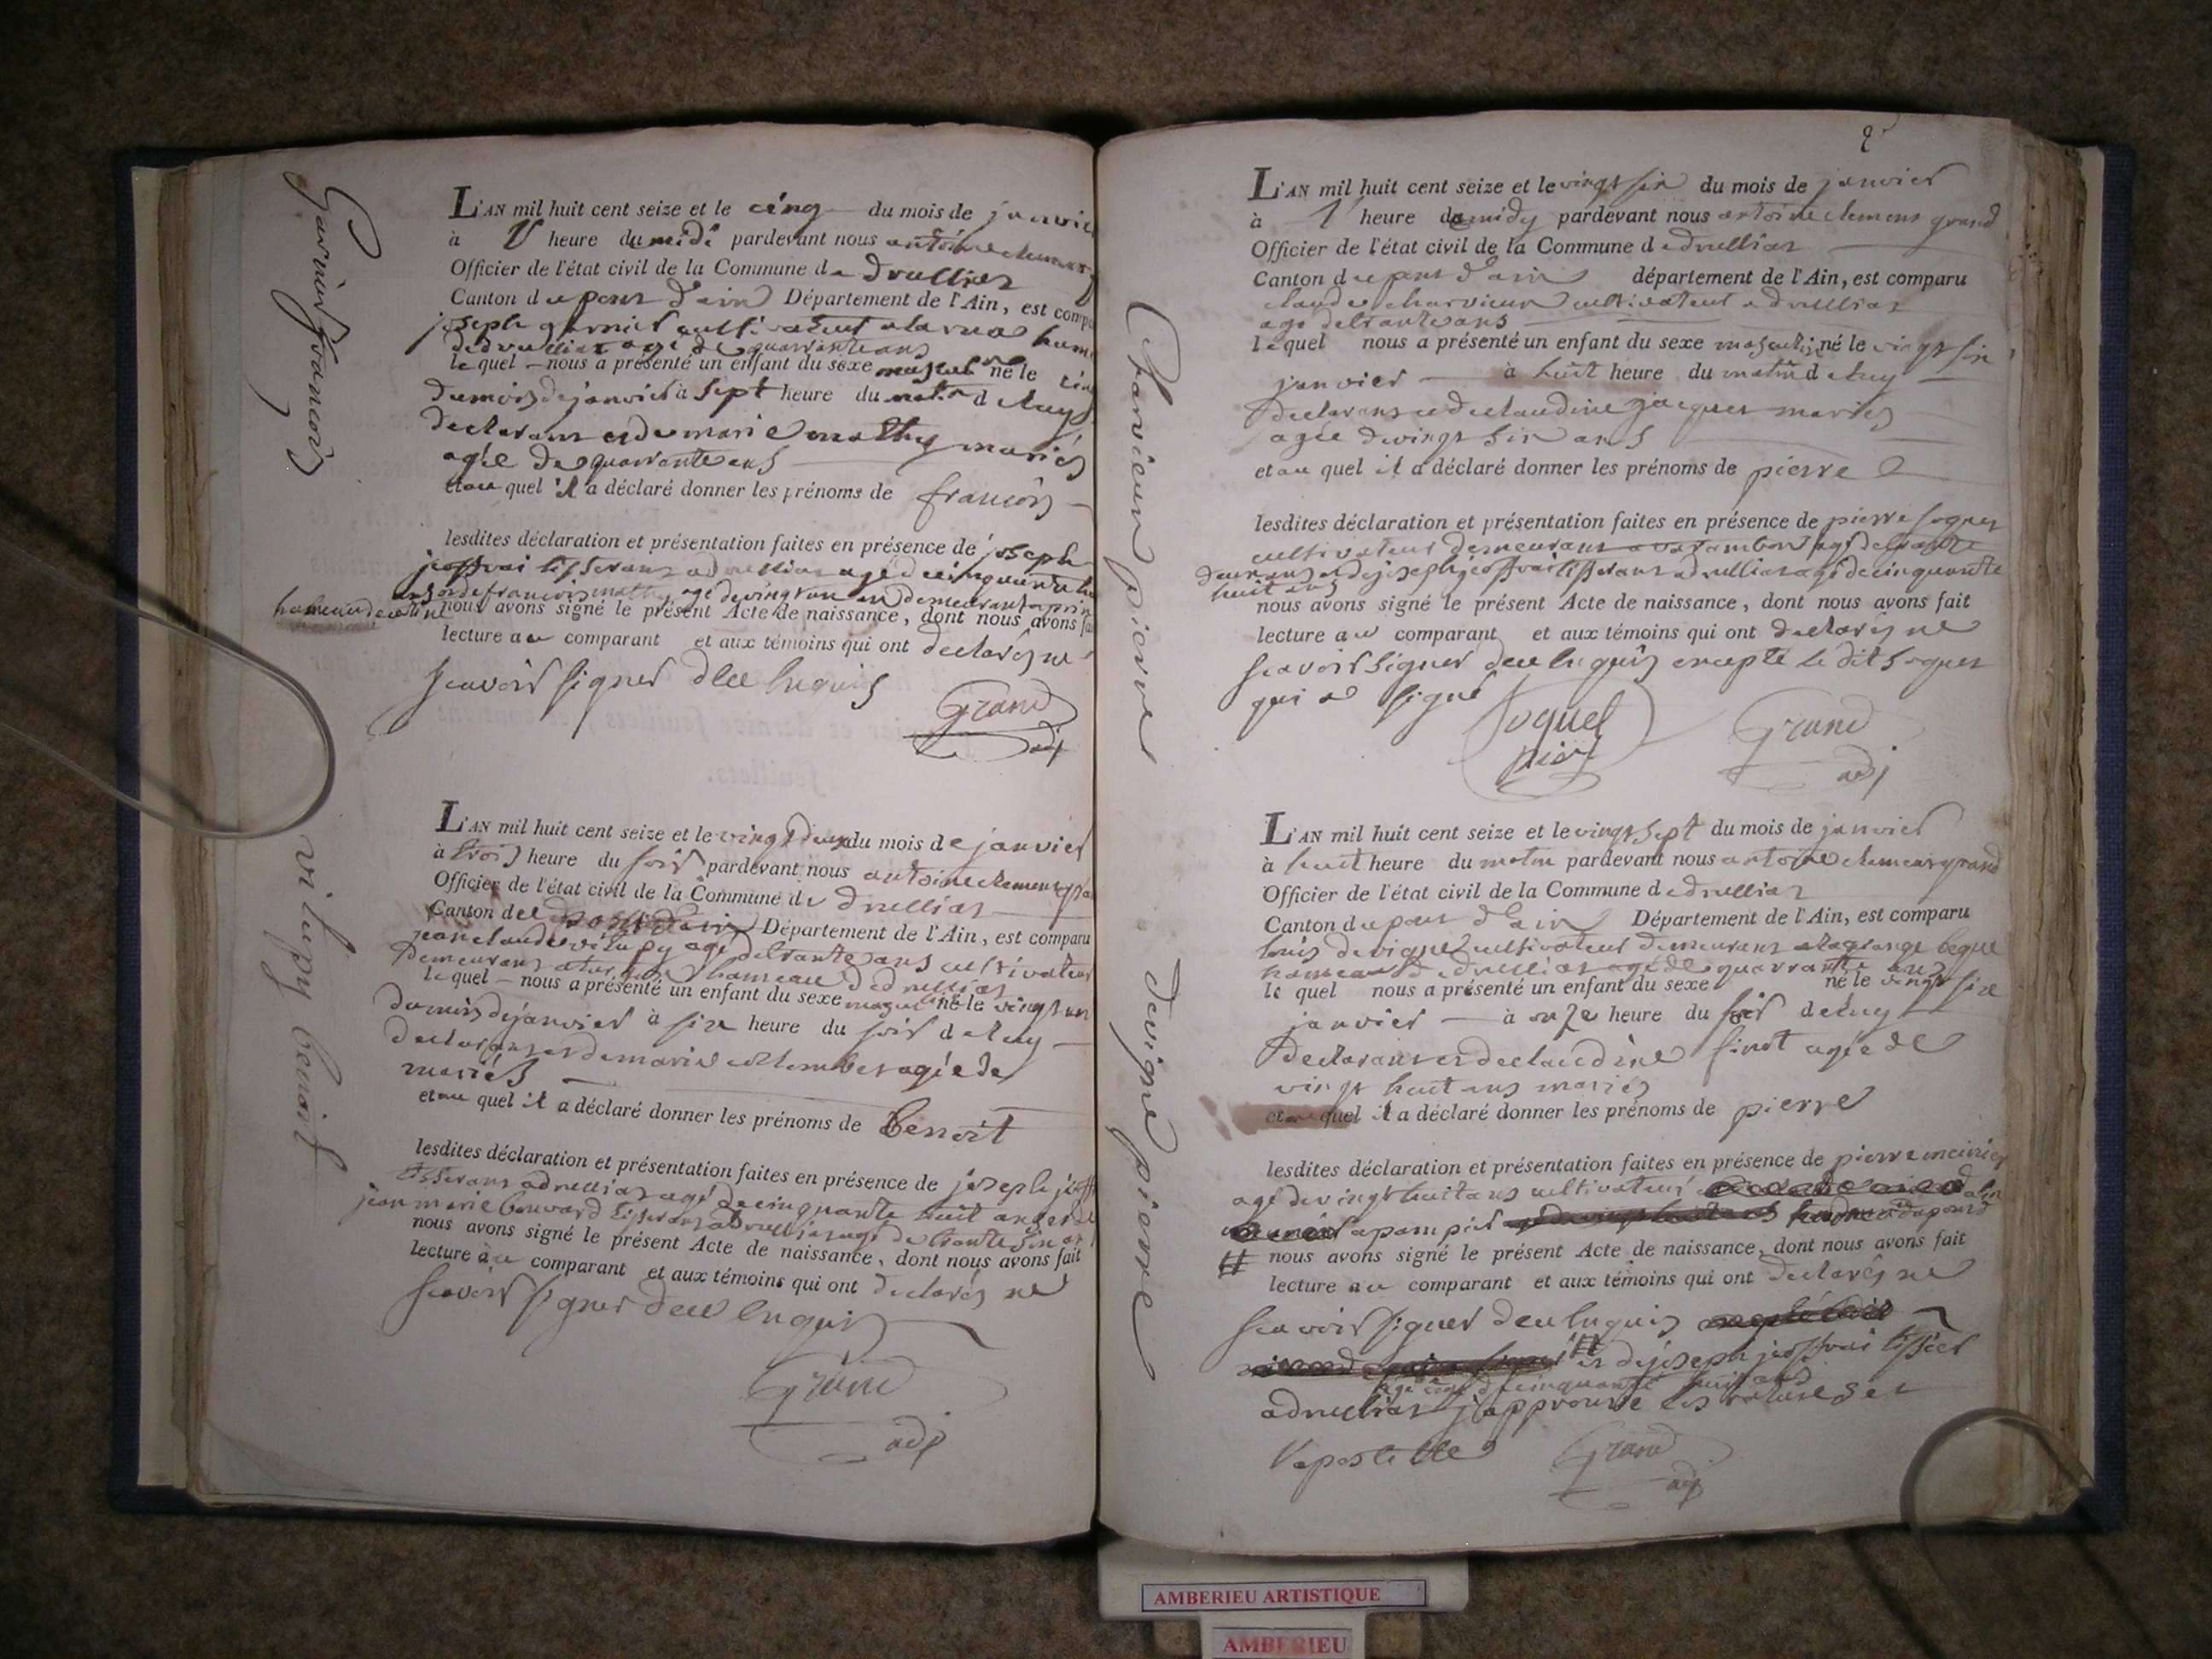 Garnier francois
L'AN mil huit cent seize et le cinq du mois de janvier
à 1 heure du midi pardevant nous antoine clement
Officier de l'état civil de la Commune de druillias
Canton du pont d'ain Département de l'Ain, est comp
joseph garnier cultivateur a la rua ham
de druillias agé de quarrante ans
le quel nous a présenté un enfant du sexe mascul né le cinq
du mois de janvier à sept heure du matin de luy
declarant et de marie mathy mariés
agée de quarrante ans
et au quel il a déclaré donner les prénoms de francois
lesdites déclaration et présentation faites en présence de joseph
jeoffrai tisserant a druillias agé de cinquante hu
ans et de francois mathy agé de vingt un an demeurant a prin
hameau de
nous avons signé le présent Acte de naissance, dont nous avons fai
lecture au comparant et aux témoins qui ont declarés ne
scavoir signer de ce enquis
Grand
adj
vilupy benoit
L'AN mil huit cent seize et le vingt deux du mois de janvier
à trois heure du soir pardevant nous antoine clement gra
Officier de l'état civil de la Commune de druillias
Canton de pont d'ain Département de l'Ain, est comparu
jean claude vilupy agé de trante ans cultivateur
demeurant hameau de druillias
le quel nous a présenté un enfant du sexe mascul né le vingt un
du mois de janvier à six heure du soir de luy
declarant et de marie colombet agée de
mariés
et au quel il a déclaré donner les prénoms de Benoit
lesdites déclaration et présentation faites en présence de joseph jeoff
tisserant a druillias agé de cinquante huit ans et de
jean marie bouvard tisserant a druillias agé de trante six ans
nous avons signé le présent Acte de naissance, dont nous avons fait
lecture au comparant et aux témoins qui ont declarés ne
scavoir signer de ce enquis
Grand
adj
Charvieux pierre
2
L'AN mil huit cent seize et le vingt six du mois de janvier
à 1 heure de midy pardevant nous antoine clement grand
Officier de l'état civil de la Commune de druillias
Canton du pont d'ain département de l'Ain, est comparu
claude charvieux cultivateur a druillias
agé de trante ans
le quel nous a présenté un enfant du sexe masculin né le vingt six
janvier à huit heure du matin de luy
declarant et de claudine jacquet mariés
agée de vingt six ans
et au quel il a déclaré donner les prénoms de pierre
lesdites déclaration et présentation faites en présence de pierre soquet
cultivateur demeurant a varambon agé de trante
deux ans et de joseph jeoffrai tisserant a druillias agé de cinquante
huit ans
nous avons signé le présent Acte de naissance, dont nous avons fait
lecture au comparant et aux témoins qui ont declarés ne
scavoir signer de ce enquis excepté le dit soquet
qui a signé
Soquet
pier
Grand
adj
devigne pierre
L'AN mil huit cent seize et le vingt sept du mois de janvier
à huit heure du matin pardevant nous antoine clement grand
Officier de l'état civil de la Commune de druillias
Canton du pont d'ain Département de l'Ain, est comparu
louis devigne cultivateur demeurant a lagrange beque
hameau de druillias agé de quarrante ans
le quel nous a présenté un enfant du sexe né le vingt six
janvier à onze heure du soir de luy
declarant et de claudine sinot agée de
vingt huit ans mariés
et au quel il a déclaré donner les prénoms de pierre
lesdites déclaration et présentation faites en présence de pierre
agé de vingt huit ans cultivateur
a pampier
nous avons signé le présent Acte de naissance, dont nous avons fait
lecture au comparant et aux témoins qui ont declarés ne
scavoir signer de ce enquis
et de joseph jeoffrai tissier
agé de cinquante huit ans
a druillias j'approuve les ratures et
l'apostille
Grand
adj
AMBERIEU ARTISTIQUE
AMBERIEU